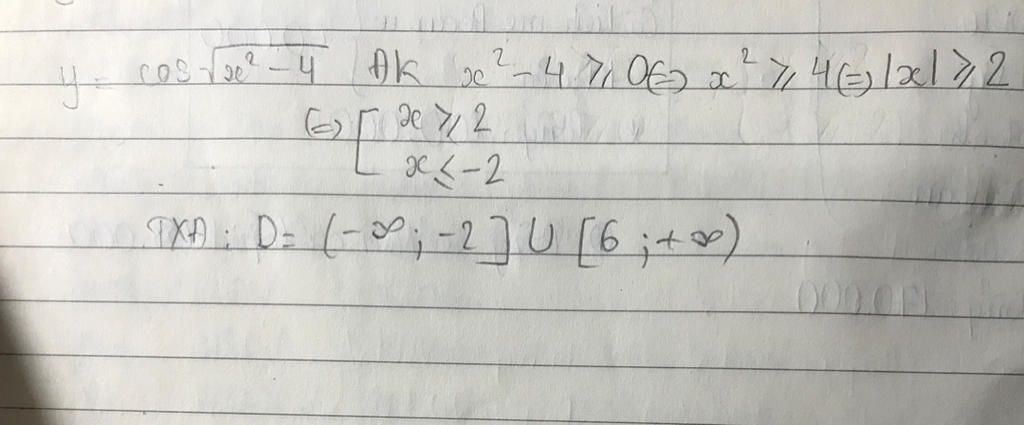 y = cos √(x² - 4) ĐK x² - 4 ≥ 0 (=) x² ≥ 4 (=) |x| ≥ 2
(=) [ x ≥ 2
x ≤ -2
TXĐ: D = (-∞; -2] ∪ [6; +∞)